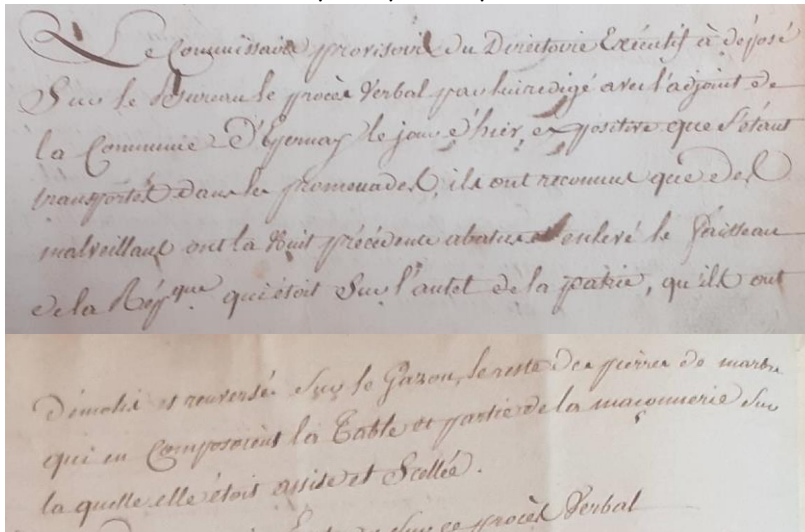 Le Commissaire provisoire du Directoire Exécutif à déposé
Sur le Bureau le procès Verbal par lui redigé avec l'adjoint de
la Commune D'Epernay le jour d'hier, expositive que S'étant
transportés dans les promenades, ils ont reconnus que des
malveillans ont la Nuit précédente abatus et enlevé le faisseau
de la Rép^que qui étoit Sur l'autel de la patrie, qu'ils ont
démolis et renversé Sur le Gazon, le reste des pierres de marbre
qui en Composoient la Table et partie de la maçonnerie Sur
la quelle elle étoit assise et Scellée.
Sur ce procès Verbal